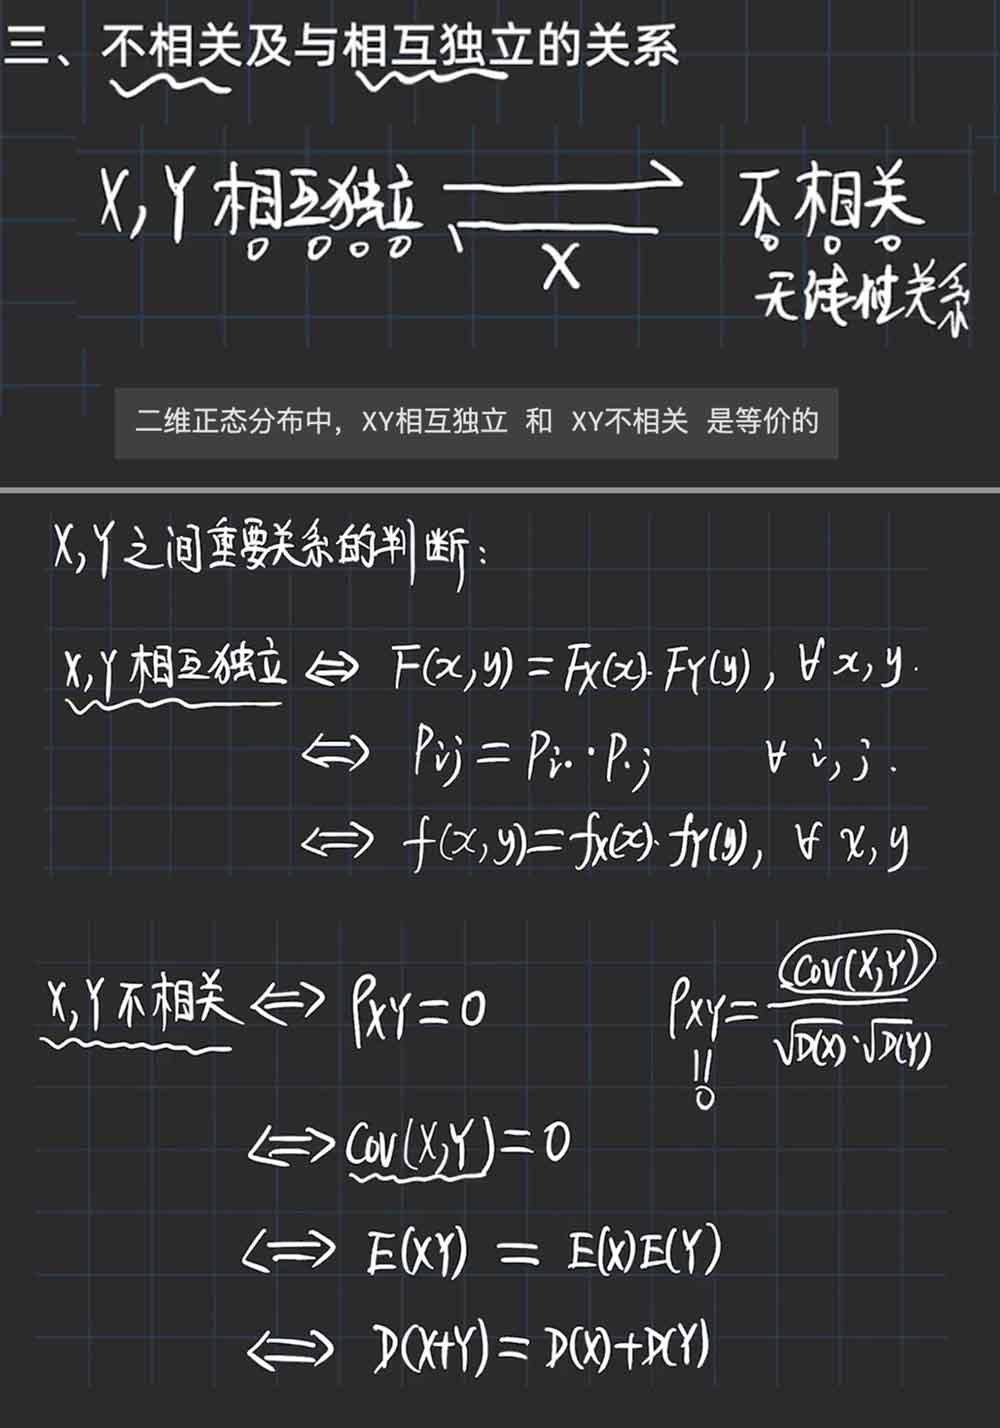 三、不相关及与相互独立的关系
X,Y 相互独立 ⇌ 不相关
X
无线性关系
二维正态分布中，XY相互独立 和 XY不相关 是等价的
X,Y之间重要关系的判断:
X,Y 相互独立 ⇔ F(x,y)=F_X(x)·F_Y(y), ∀ x,y.
⇔ P_ij = P_i.·P_.j ∀ i,j.
⇔ f(x,y)=f_X(x)·f_Y(y), ∀ x,y
X,Y不相关 ⇔ ρ_XY=0 ρ_XY= Cov(X,Y) / √D(X)·√D(Y)
||
0
⇔ Cov(X,Y)=0
⇔ E(XY) = E(X)E(Y)
⇔ D(X+Y)=D(X)+D(Y)